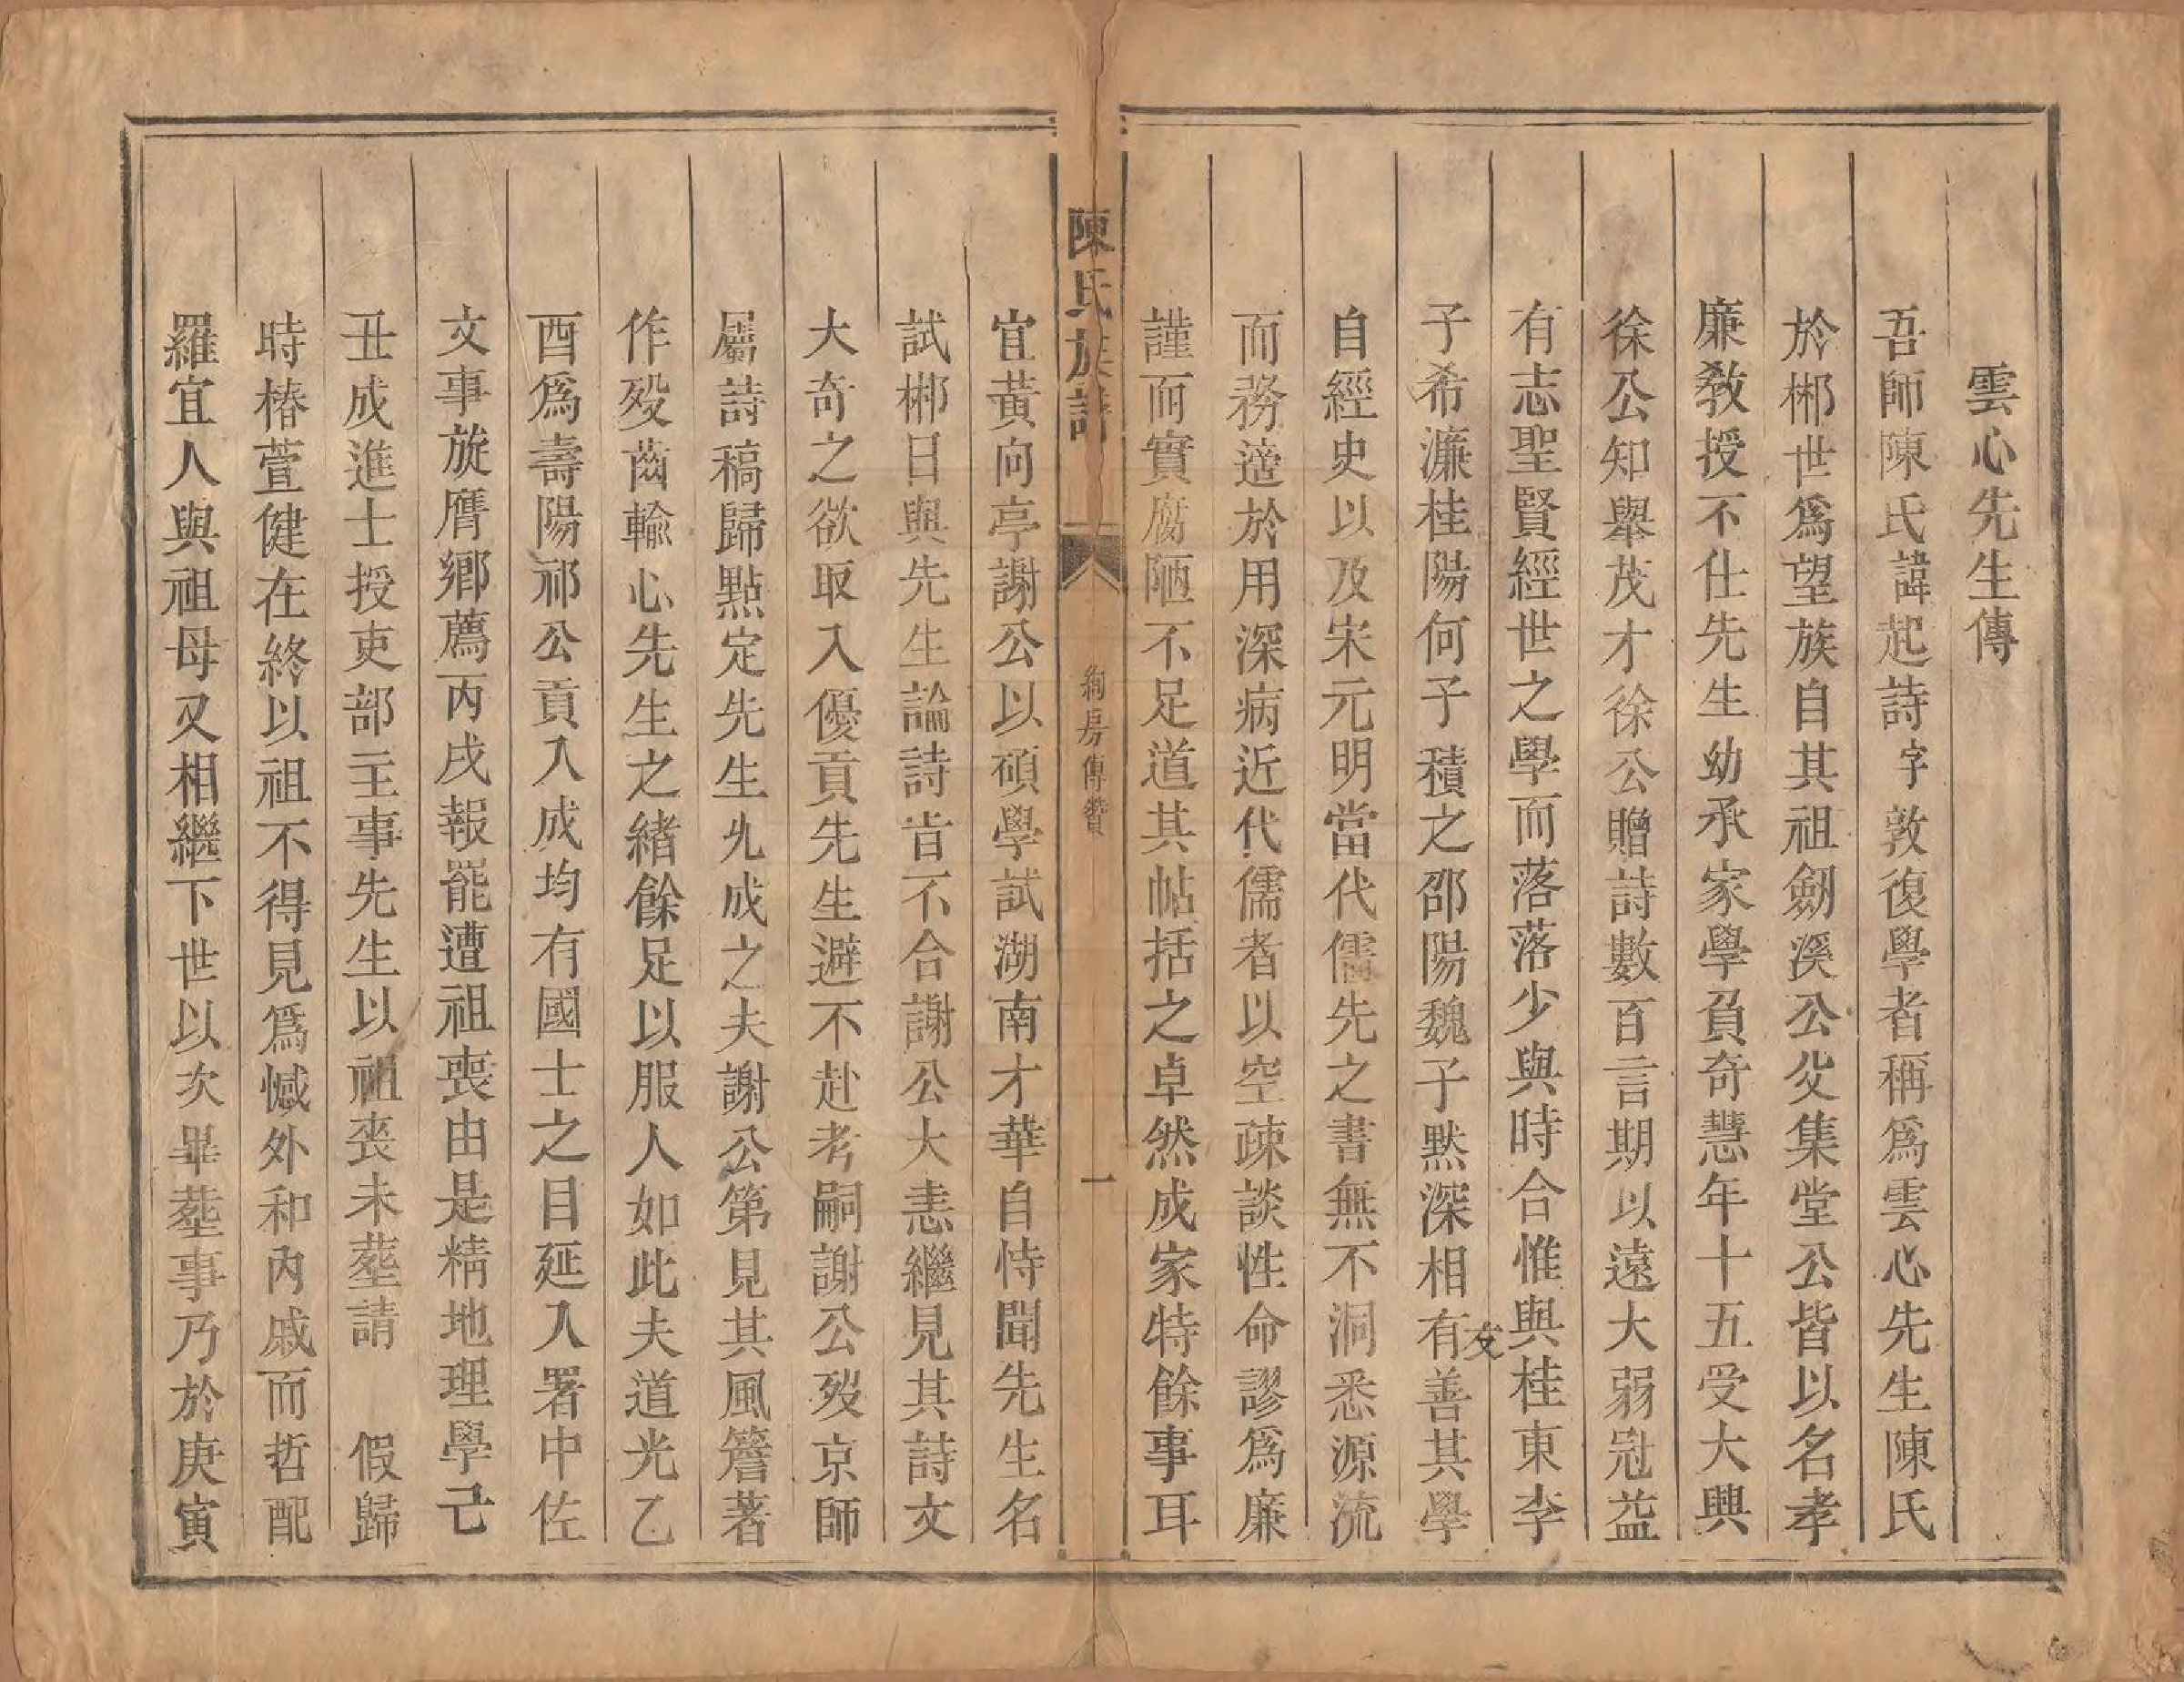 雲心先生傳
吾師陳氏諱起詩字敦復學者稱爲雲心先生陳氏
於郴世爲望族自其祖劒溪公父集堂公皆以名孝
廉教授不仕先生幼承家學負奇慧年十五受大興
徐公知舉茂才徐公贈詩數百言期以遠大弱冠益
有志聖賢經世之學而落落少與時合惟與桂東李
子希濂桂陽何子積之邵陽魏子默深相有善其學
友
自經史以及宋元明當代儒先之書無不洞悉源流
而務適於用深病近代儒者以空疎談性命謬爲廉
謹而實腐陋不足道其帖括之卓然成家特餘事耳
陳氏族譜
絢房傳贊
一
宜黃向亭謝公以碩學試湖南才華自恃聞先生名
試郴日與先生論詩㫖不合謝公大恚繼見其詩文
大奇之欲取入優貢先生避不赴考嗣謝公歿京師
屬詩稿歸點定先生允成之夫謝公第見其風簷著
作歿齒輸心先生之緒餘足以服人如此夫道光乙
酉爲壽陽祁公貢入成均有國士之目延入署中佐
文事旋膺鄉薦丙戌報罷遭祖喪由是精地理學己
丑成進士授吏部主事先生以祖喪未塟請　假歸
時椿萱健在終以祖不得見爲憾外和內戚而哲配
羅宜人與祖母又相繼下世以次畢塟事乃於庚寅